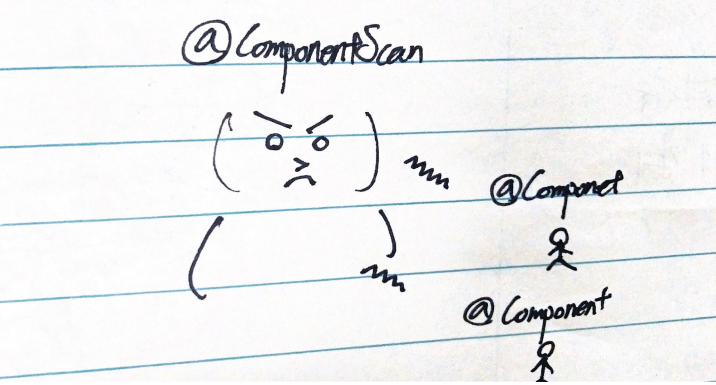 @ComponentScan
@Componet
@Component